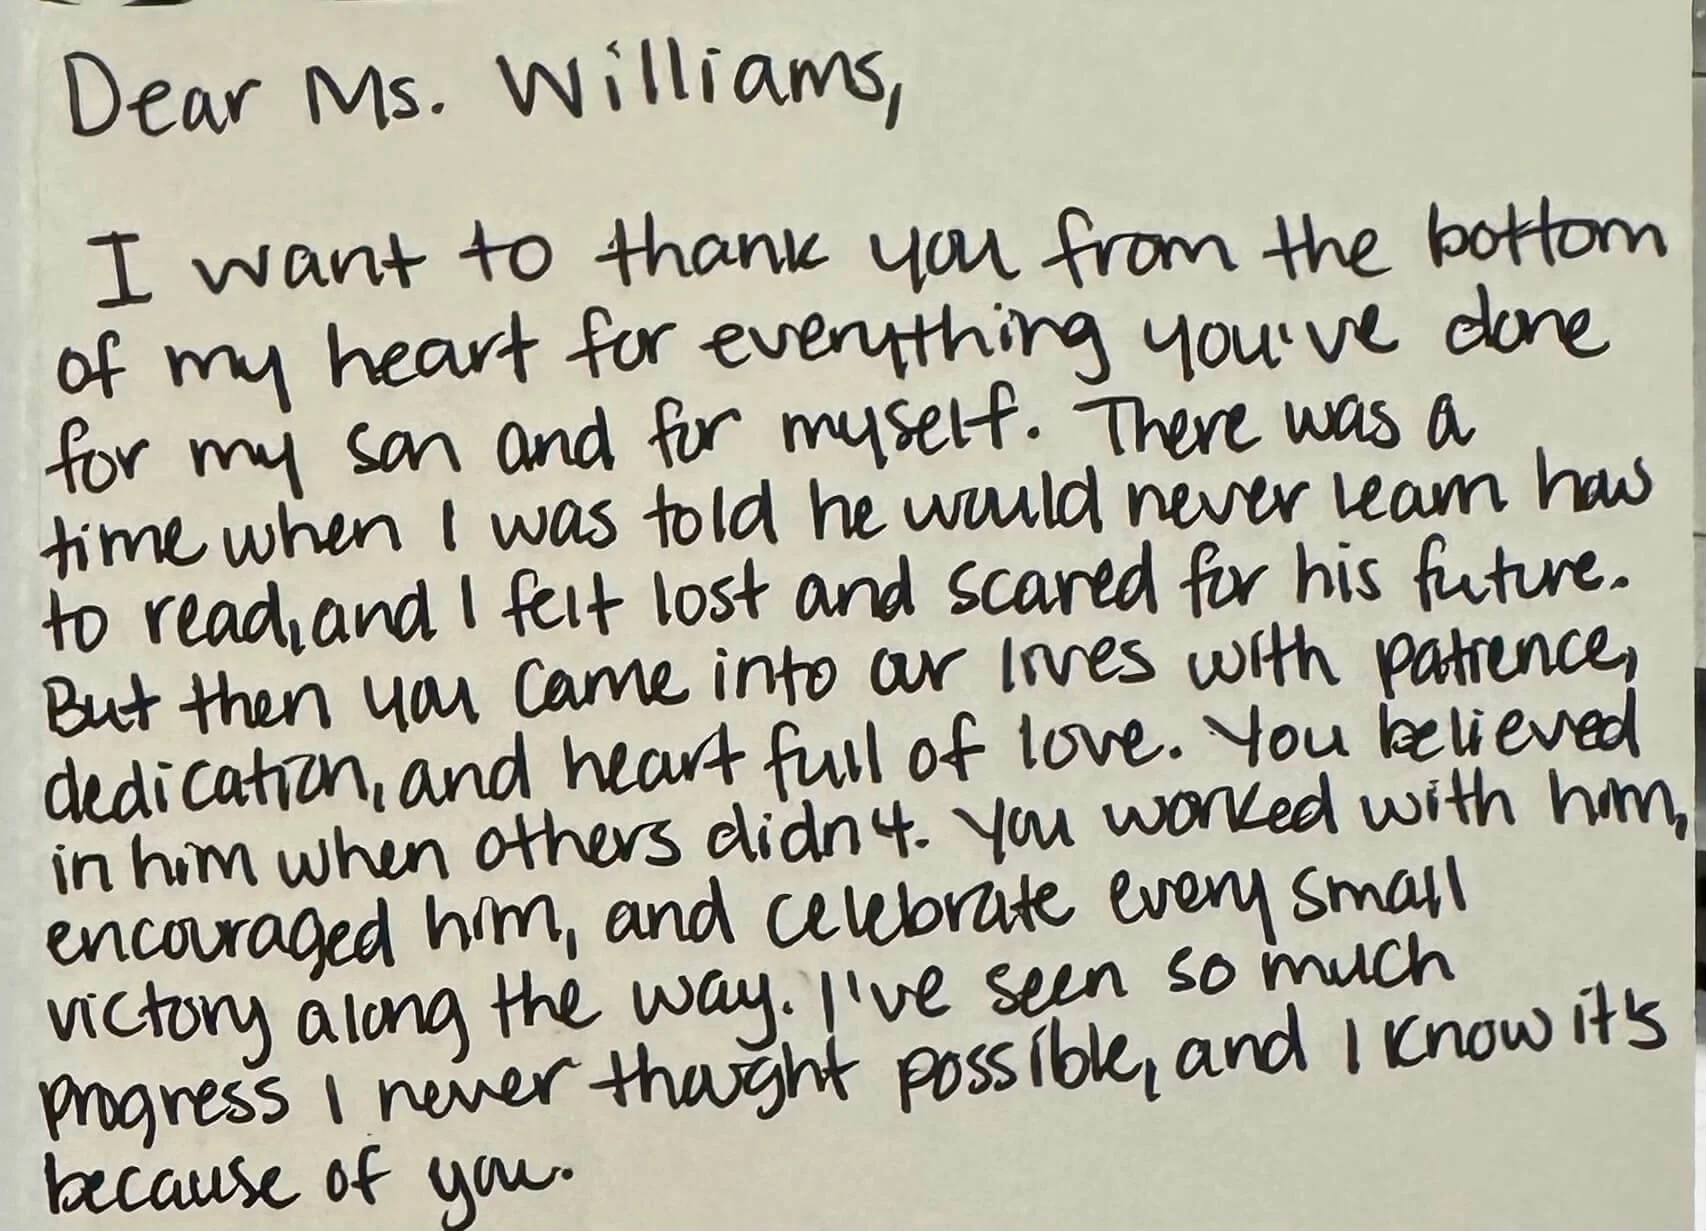 Dear Ms. Williams,
I want to thank you from the bottom
of my heart for everything you've done
for my son and for myself. There was a
time when I was told he would never learn how
to read, and I felt lost and scared for his future.
But then you came into our lives with patience,
dedication, and heart full of love. You believed
in him when others didn't. You worked with him,
encouraged him, and celebrate every small
victory along the way. I've seen so much
progress I never thought possible, and I know it's
because of you.